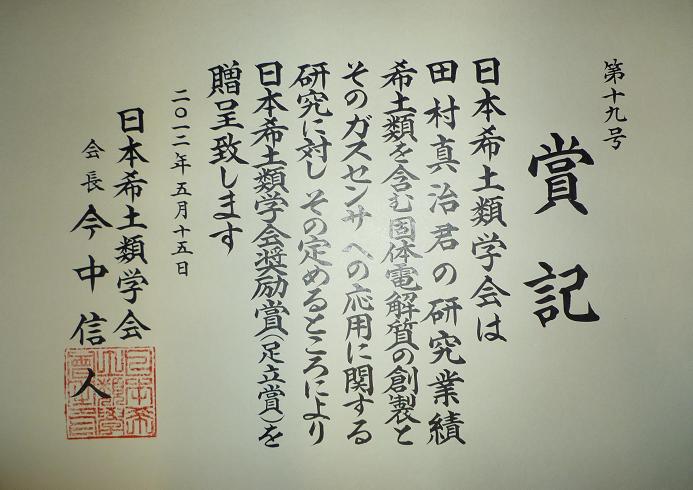 第十九号
賞記
日本希土類学会は
田村真治君の研究業績
希土類を含む固体電解質の創製と
そのガスセンサへの応用に関する
研究に対し その定めるところにより
日本希土類学会奨励賞(足立賞)を
贈呈致します
二〇一二年五月十五日
日本希土類学会
会長 今中信人